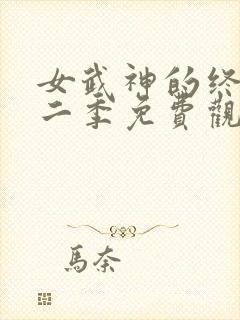 女武神的终
二季免費觀
馬奈